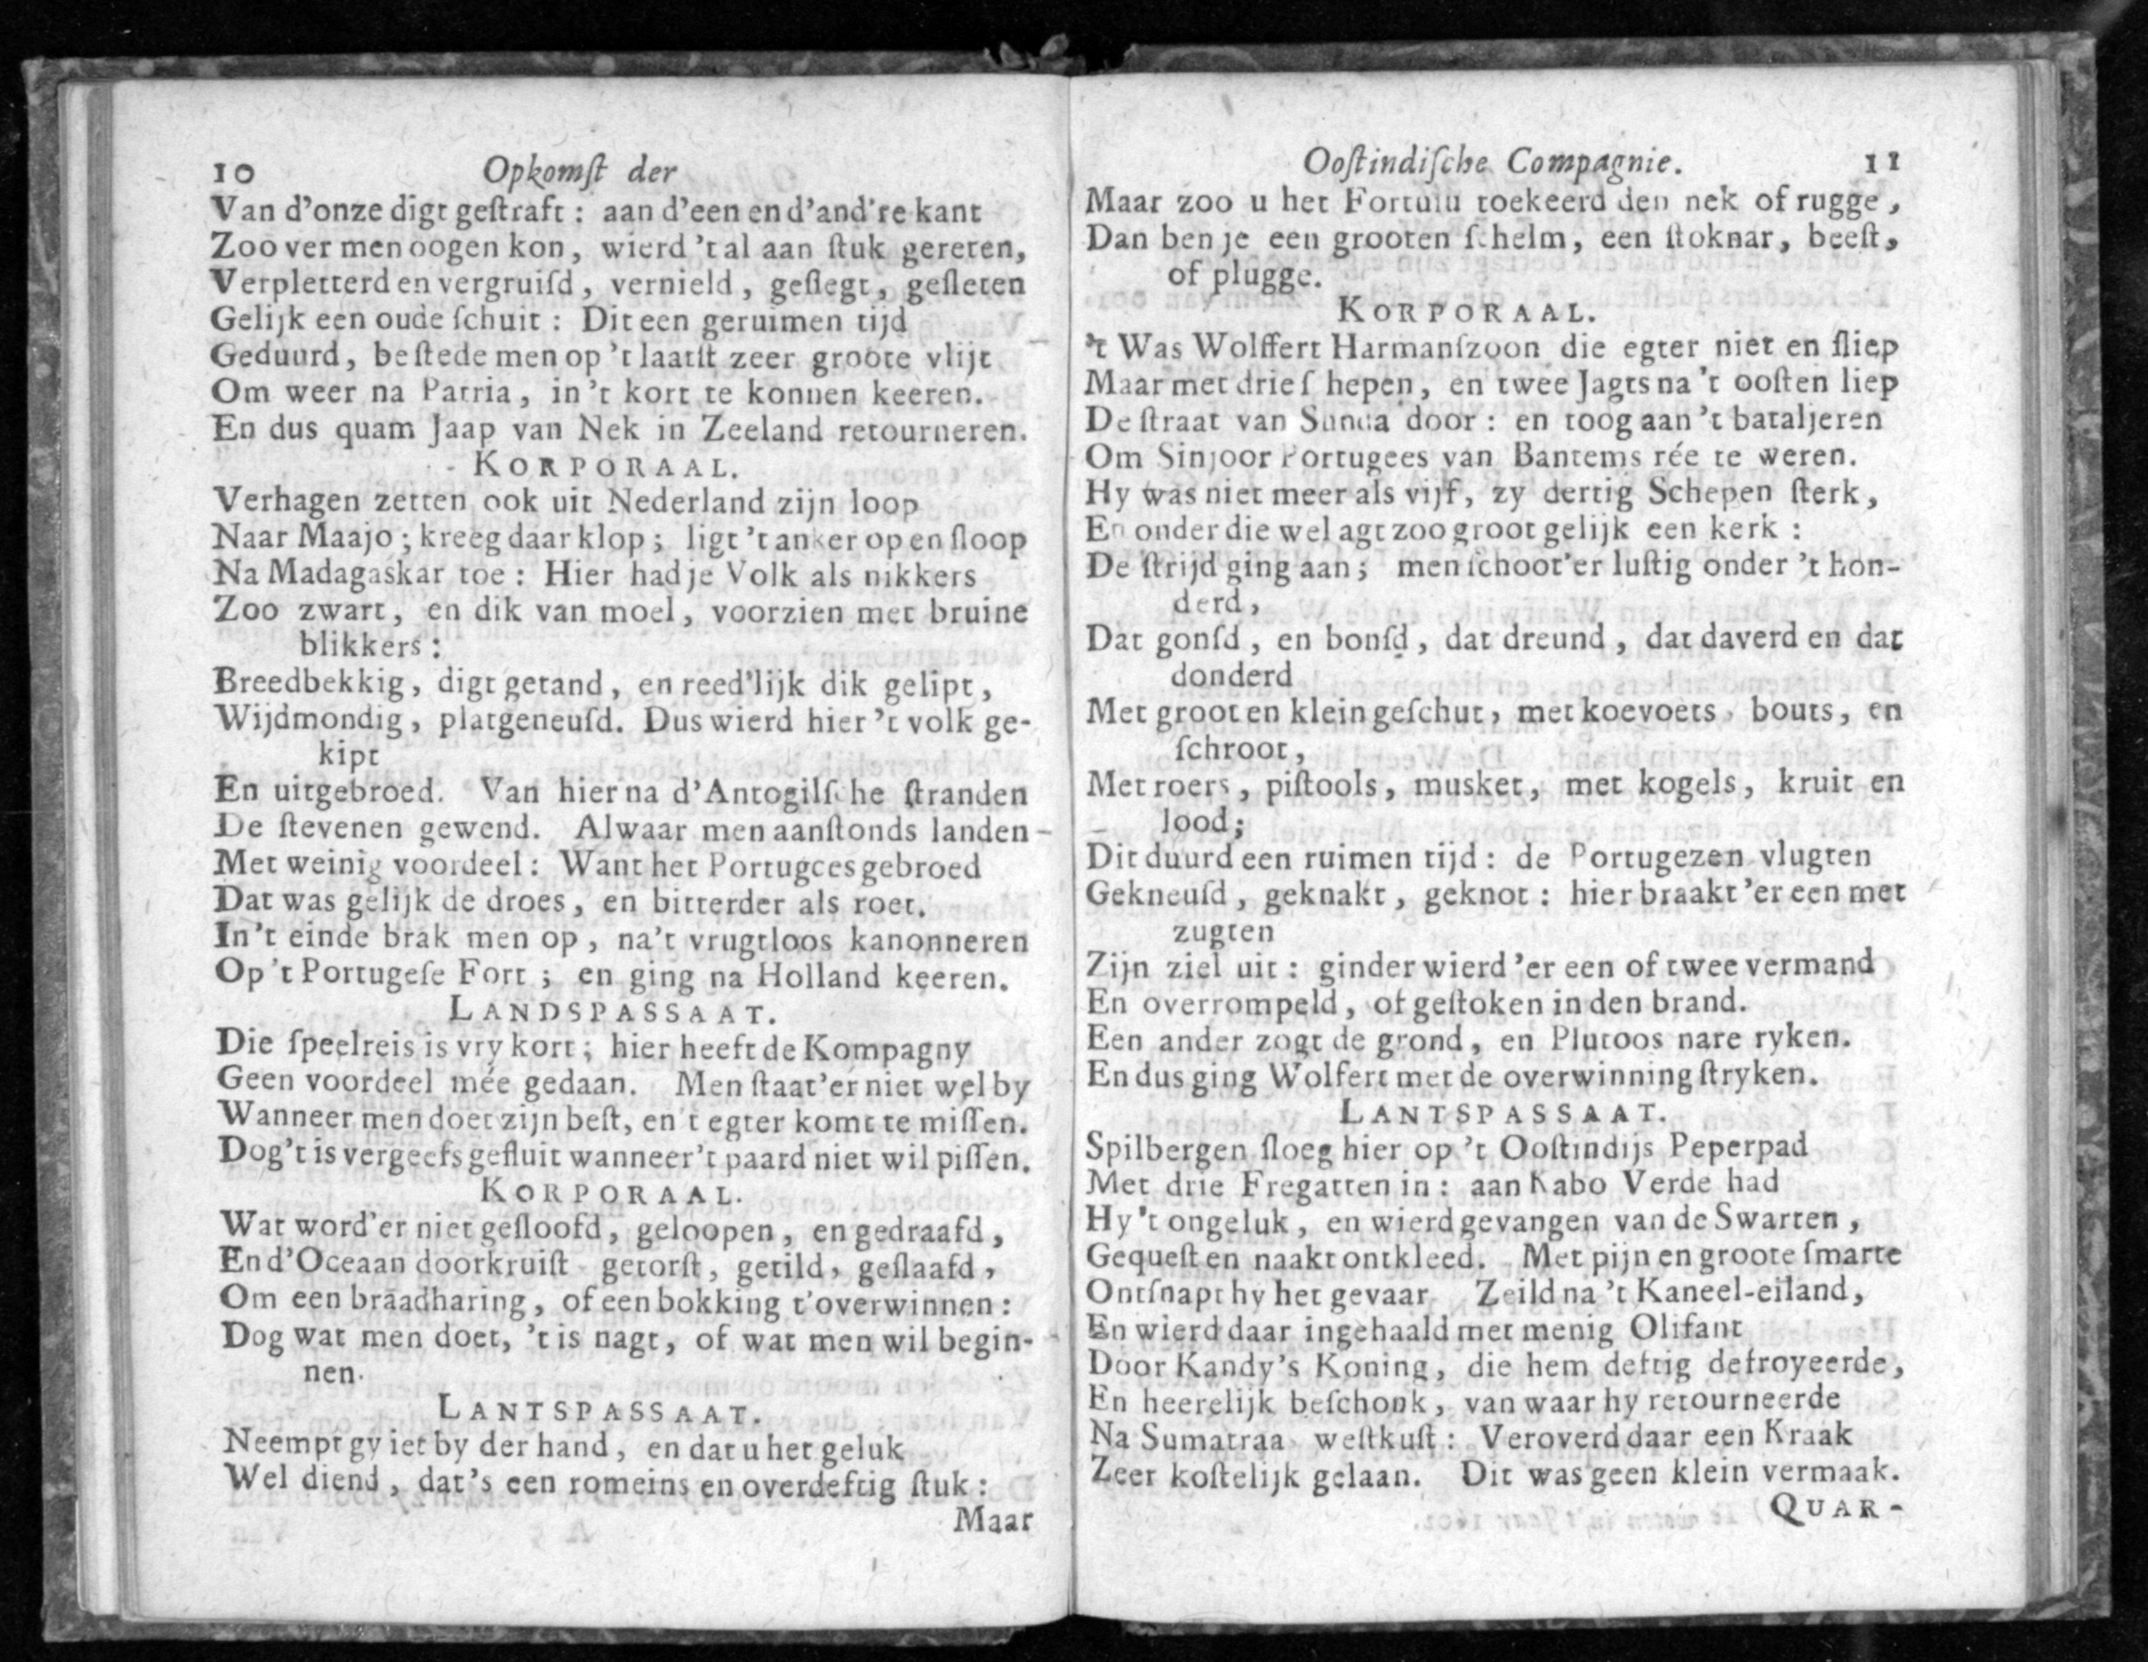 10 Opkomſt der
Van d'onze digt geſtraft : aan d'een en d'and're kant
Zoo ver men oogen kon, wierd 't al aan ſtuk gereten,
Verpletterd en vergruiſd, vernield, geſlegt, geſleten
Gelijk een oude ſchuit : Dit een geruimen tijd
Geduurd, beſtede men op 't laatſt zeer groote vlijt
Om weer na Patria, in 't kort te konnen keeren.
En dus quam Jaap van Nek in Zeeland retourneren.
KORPORAAL.
Verhagen zetten ook uit Nederland zijn loop
Naar Maajo ; kreeg daar klop ; ligt 't anker op en ſloop
Na Madagaskar toe : Hier had je Volk als nikkers
Zoo zwart, en dik van moel, voorzien met bruine
blikkers :
Breedbekkig, digt getand, en reed'lijk dik gelipt,
Wijdmondig, platgeneuſd. Dus wierd hier 't volk ge-
kipt
En uitgebroed. Van hier na d'Antogilſche ſtranden
De ſtevenen gewend. Alwaar men aanſtonds landen
Met weinig voordeel : Want het Portugees gebroed
Dat was gelijk de droes, en bitterder als roet.
In 't einde brak men op, na 't vrugtloos kanonneren
Op 't Portugeſe Fort ; en ging na Holland keeren.
LANDSPASSAAT.
Die ſpeelreis is vry kort ; hier heeft de Kompagny
Geen voordeel mée gedaan. Men ſtaat 'er niet wel by
Wanneer men doet zijn beſt, en 't egter komt te miſſen.
Dog 't is vergeefs gefluit wanneer 't paard niet wil piſſen.
KORPORAAL.
Wat word'er niet geſloofd, geloopen, en gedraafd,
En d'Oceaan doorkruiſt getorſt, getild, geſlaafd,
Om een braadharing, of een bokking t'overwinnen :
Dog wat men doet, 't is nagt, of wat men wil begin-
nen.
LANTSPASSAAT.
Neempt gy iet by der hand, en dat u het geluk
Wel diend, dat's een romeins en overdeftig ſtuk :
Maar
Ooſtindiſche Compagnie. 11
Maar zoo u het Fortuin toekeerd den nek of rugge,
Dan ben je een grooten ſchelm, een ſtoknar, beeſt,
of plugge.
KORPORAAL.
't Was Wolffert Harmanſzoon die egter niet en ſliep
Maar met drie ſchepen, en twee Jagts na 't ooſten liep
De ſtraat van Sunda door : en toog aan 't bataljeren
Om Sinjoor Portugees van Bantems rée te weren.
Hy was niet meer als vijf, zy dertig Schepen ſterk,
En onder die wel agt zoo groot gelijk een kerk :
De ſtrijd ging aan ; men ſchoot'er luſtig onder 't hon-
derd,
Dat gonſd, en bonſd, dat dreund, dat daverd en dat
donderd
Met groot en klein geſchut, met koevoets, bouts, en
ſchroot,
Met roers, piſtools, musket, met kogels, kruit en
lood ;
Dit duurd een ruimen tijd : de Portugezen vlugten
Gekneuſd, geknakt, geknot : hier braakt 'er een met
zugten
Zijn ziel uit : ginder wierd 'er een of twee vermand
En overrompeld, of geſtoken in den brand.
Een ander zogt de grond, en Plutoos nare ryken.
En dus ging Wolfert met de overwinning ſtryken.
LANTSPASSAAT.
Spilbergen ſloeg hier op 't Ooſtindijs Peperpad
Met drie Fregatten in : aan Kabo Verde had
Hy 't ongeluk, en wierd gevangen van de Swarten,
Gequeſt en naakt ontkleed. Met pijn en groote ſmarte
Ontſnapt hy het gevaar Zeild na 't Kaneel-eiland,
En wierd daar ingehaald met menig Olifant
Door Kandy's Koning, die hem deftig defroyeerde,
En heerelijk beſchonk, van waar hy retourneerde
Na Sumatraas weſtkuſt : Veroverd daar een Kraak
Zeer koſtelijk gelaan. Dit was geen klein vermaak.
QUAR-